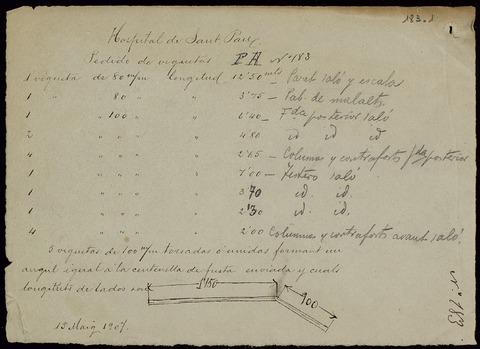 183.1
1
Hospital de Sant Pau
Pedido de viguetas PA Nº 183
1 vigueta de 80 m/m longitud 12'50 mts — Paret saló y escalas
1 " " 80 " " 3'75 — Pab. de malalts
1 " " 100 " " 6'40 — Fda posterior saló
2 " " " " " 4'80 id id id
4 " " " " " 2'65 — Columnas y contraforts fda posterior
1 " " " " " 7'00 — Testero saló
1 " " " " " 3'70 id. id.
1 " " " " " 2'30 id. id.
4 " " " " " 2'00 Columnas y contraforts avant saló.
5 viguetas de 100 m/m torsadas ó unidas formant un
angul igual a la centenella de fusta enviada y cuals
longituts de lados son
5'150
900
15 Maig 1907.